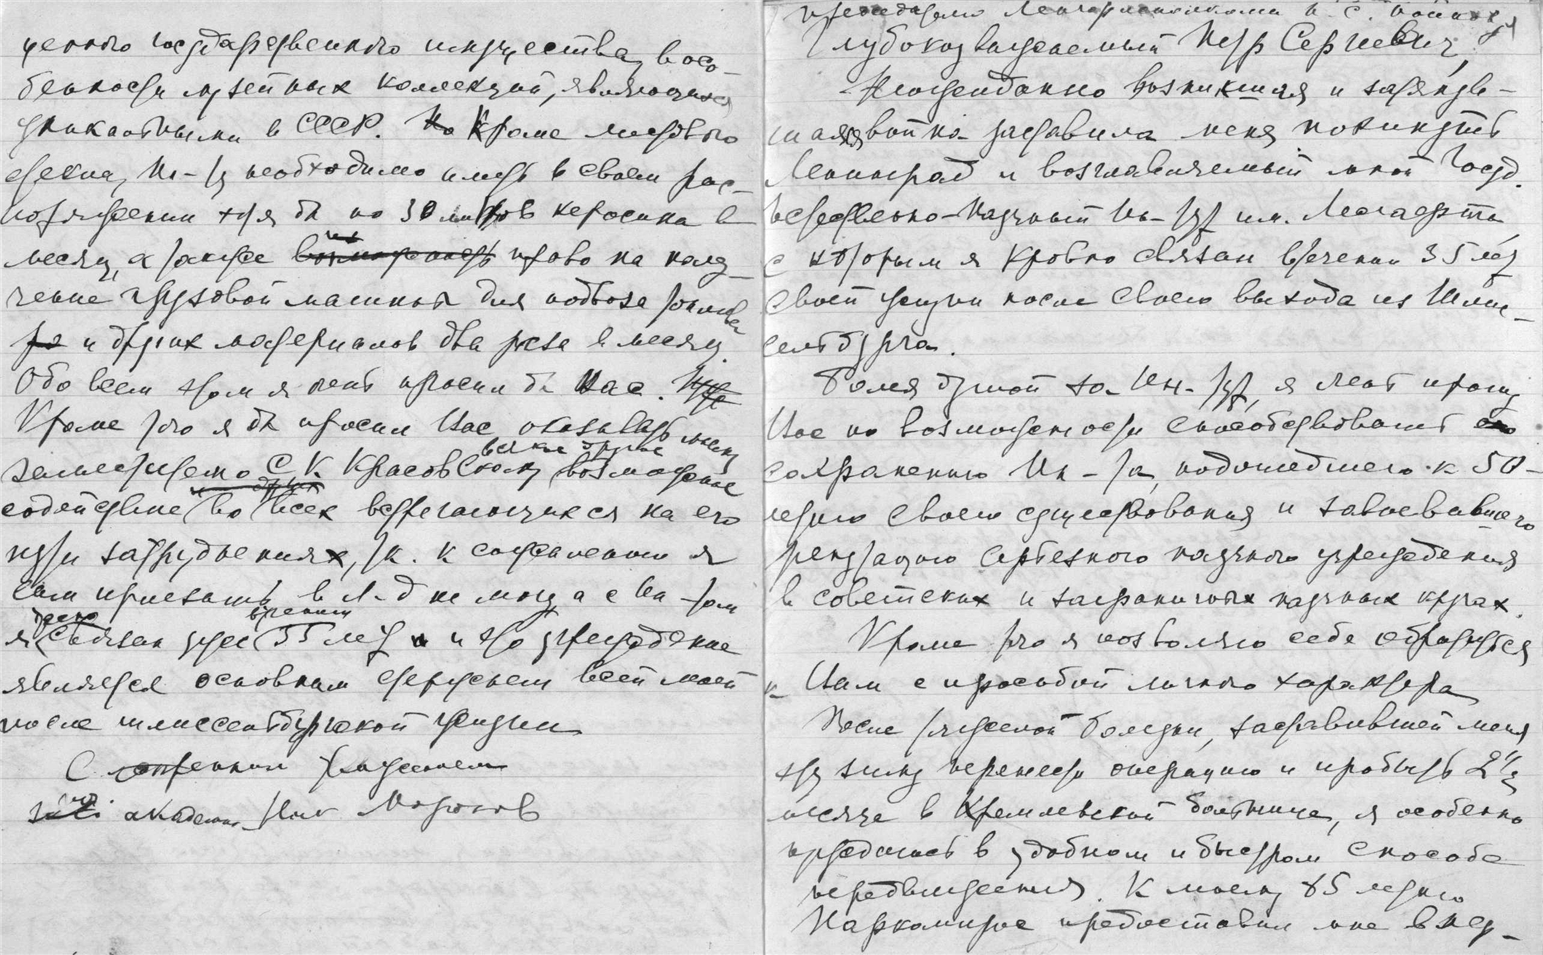 ценного государственного имущества, в осо-
бенности музейных коллекций, являющихся
уникальными в СССР. Но Кроме мирового
Ин-ту необходимо иметь в своем рас-
поряжении хотя бы по 30 литров керосина в
месяц, а также возможность право на полу-
чение грузовой машины для подвоза топлива
и других материалов два раза в месяц.
Обо всем этом я очень просил бы Вас.
Кроме того я бы просил Вас оказывать моему
заместителю С. К. Красовскому всякое другое возможное
содействие во всех встречающихся на его
пути затруднениях, т.к. к сожалению я
сам приехать в Л-д не могу а с Ин-том
я связан уже 35 лет и это учреждение
является основным детищем всей моей
после шлиссельбургской жизни
С уважением
академик Ник Морозов
председателю Ленгорисполкома П. С. Попкову
Глубокоуважаемый Петр Сергеевич,
Неожиданно возникшая и затянув-
шаяся война заставила меня покинуть
Ленинград и возглавляемый мной Госуд.
Естественно-Научный Ин-тут им. Лесгафта,
с которым я кровно связан в течении 35 лет
своей жизни после своего выхода из Шлис-
сельбурга.
Болея душой за Ин-тут, я очень прошу
Вас по возможности способствовать его
сохранению Ин-та, подошедшего к 50-
летию своего существования и завоевавшего
репутацию серьезного научного учреждения
в советских и заграничных научных кругах.
Кроме того я позволяю себе обратиться
к Вам с просьбой личного характера
После тяжелой болезни, заставившей меня
эту зиму перенести операцию и пробыть 2½
месяца в Кремлевской больнице, я особенно
нуждаюсь в удобном и быстром способе
передвижения. К моему 85 летию
Наркомпрос предоставил мне в пер-